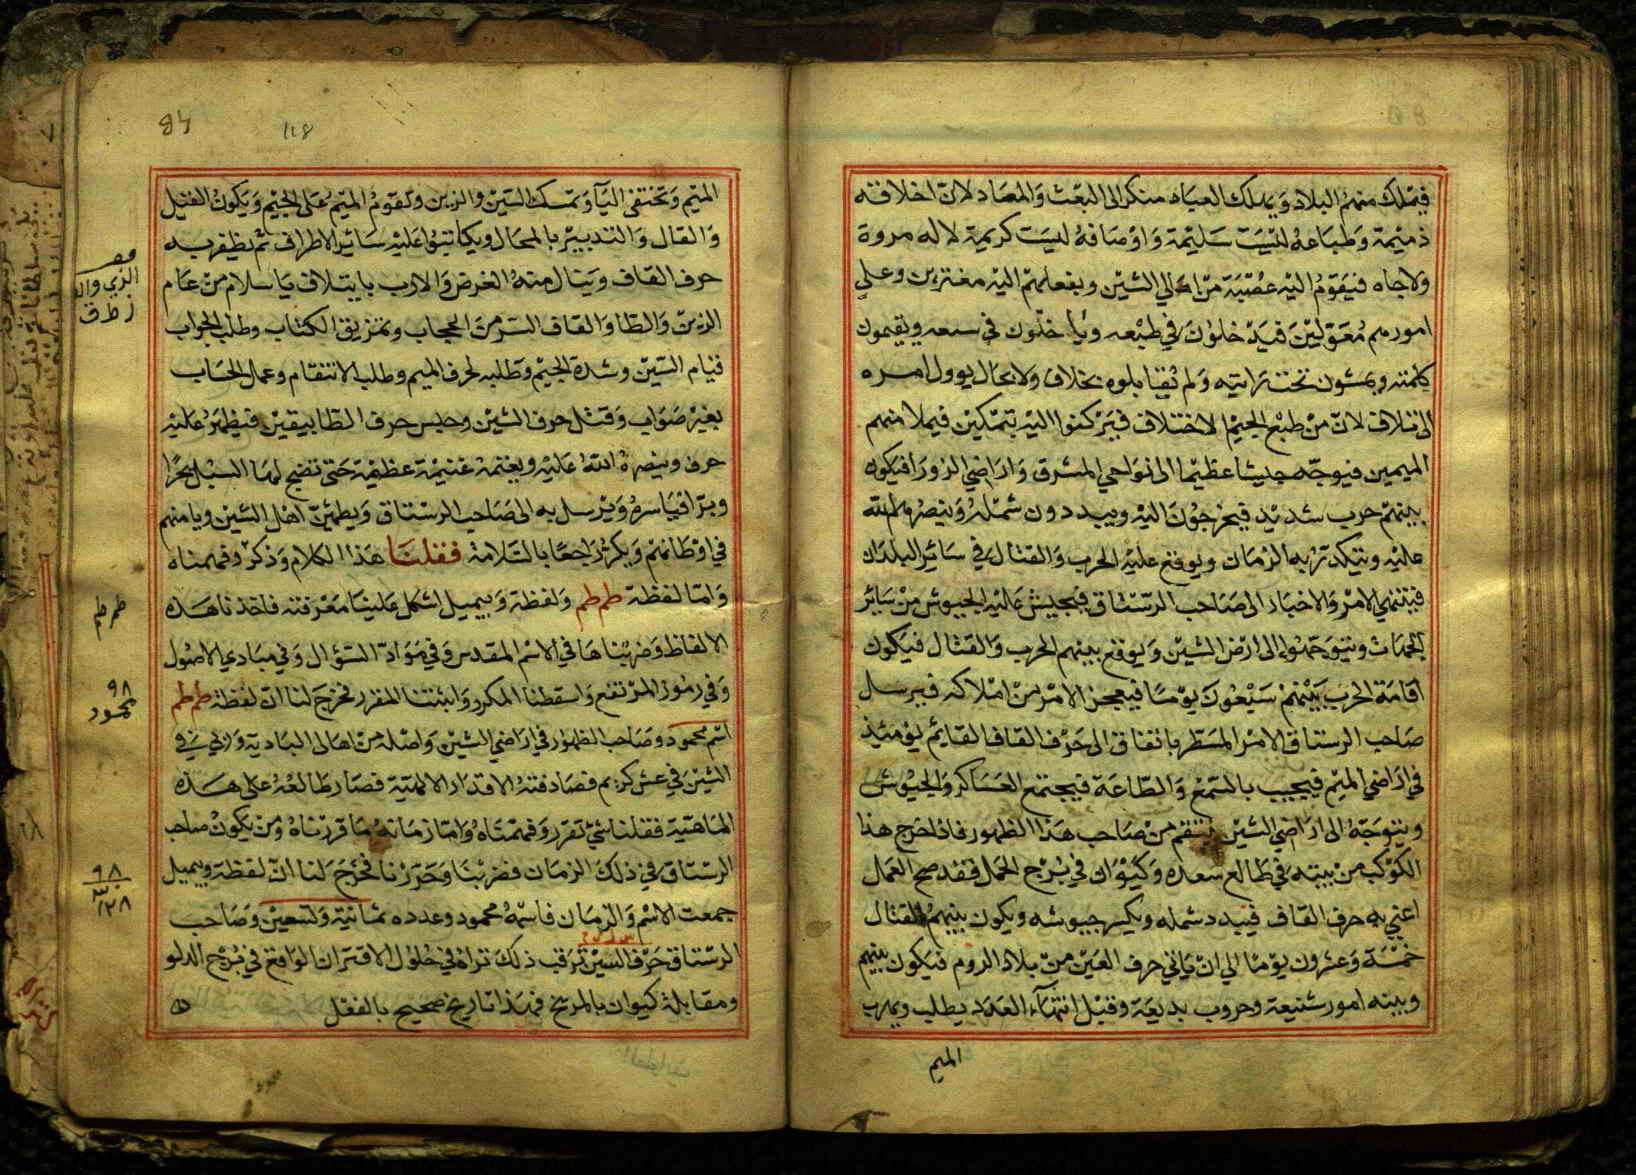 فيملك منهم البلاد ويملك العباد منكر الى البعث والمعاد لان اخلاقه
ذميمة وطباعه ليست سليمة واوصافه ليست كريمة لا له مروة
ولا جاه فيقوم اليه عصبة من اهالي الشين وبفعلهم اليه مغترين وعلى
امورهم معولين فيدخلون في طبعه ويأخذون في سمعه ويقيمون
كلمته ويمشون تحت رايته ولم يقابلوه بخلاف ولا بحال يوول امره
الى خلاف لان من طبع الجيم الاختلاف فيركنوا اليه بتمكين فيملا منهم
الميمين فيوجه جيشا عظيما الى نواحي المشرق واراضي الزورا فيكون
بينهم حرب شديد فيخرجون اليه ويبددون شمله وينصرهم الله
عليه ويتكدر به الزمان ويوقع عليه الحرب والقتال في ساير البلدان
فينتهي الامر والاخبار الى صاحب الرستاق فيجيش عليه الجيوش من ساير
الجهات ويتوجهوا الى ارض الشين ويوقع بينهم الحرب والقتال فيكون
اقامة الحرب بينهم سبعون يوما فيعجز الامر من املاكه فيرسل
صاحب الرستاق الامر المسطر باتفاق الى حرف القاف القايم يومئذ
في اراضي الميم فيجيب بالسمع والطاعة فيجتمع العساكر والجيوش
ويتوجه الى اراضي الشين ينتقم من صاحب هذا الظهور فاذا خرج هذا
الكوكب من بيته في طالع سعده وكيوان في برج الحمل فقد صح العمل
اعني به حرف القاف فيبدد شمله ويكسر جيوشه ويكون بينهم القتال
خمسة وعشرون يوما الى ان ياتي حرف العين من بلاد الروم فيكون بينهم
وبينه امور شنيعة وحروب بديعة وقبل انتهاء العدد يطلب ويهرب
الميم
84
118
الميم وتختفى اليا وتمسك السين والزين وتقوم الميم على الجيم ويكون القيل
والقال والتدبير بالمحال ويكاتبوا عليه ساير الاطراف ثم يظفر به
حرف القاف وينال منه الغرض والارب بايتلاف يا سلام من عام
الزين والطا والقاف السر من الحجاب وتمزيق الكتاب وطلب الجواب
قيام السين وشدة الجيم وطلبه لحرف الميم وطلب الانتقام وعمل الحساب
بغير صواب وقتل حرف الشين وحبس حرف الطا بيقين فيظهر عليه
حرف وينصره الله عليه ويغنمه غنيمة عظيمة حتى تضيع لها السبل بحرا
وبرا فياسره ويرسل به الى صاحب الرستاق ويطمئن اهل الشين ويامنهم
في اوطانهم ويكر راجعا بالسلامة فقلنا هذا الكلام وذكر وفهمناه
واما لفظة طم طم ولفظة وييميل اشكل علينا معرفته فاخذنا هذه
الالفاظ وضربناها في الاسم المقدس وفي مواد السؤال وفي مبادي الاصول
وفي رموز المرتفع واسقطنا المكرر واثبتنا المقرر فخرج لنا ان لفظة طم طم
اسم محمود وصاحب الظهور في اراضي الشين واصله من اهالى البادية وربي في
الشين في عش كريم فصادفته الاقدار الالهية فصار طالعه على هذه
الماهية فقلنا شي تقرر وفهمناه واما زمانه ما قررناه ومن يكون صاحب
الرستاق في ذلك الزمان فضربنا وحررنا فخرج لنا ان لفظة وييميل
جمعت الاسم والزمان فاسمه محمود وعدده ثمانية وتسعين وصاحب
الرستاق حرف السين ترقب ذلك تراه في حلول الاقتران الواقع في برج الدلو
ومقابلة كيوان بالمريخ فهذا تاريخ صحيح بالفعل
طم طم
٩٨
محمود
٩٨